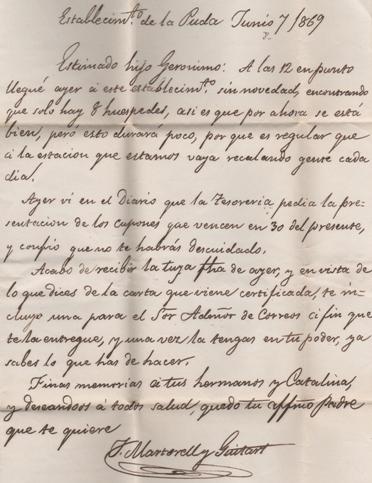 Establecim.to de la Puda Junio 7/1869
Estimado hijo Geronimo: A las 12 en punto
llegué ayer á este establecim.to sin novedad, encontrando
que solo hay 8 huespedes, asi es que por ahora se está
bien, peró esto durará poco, por que es regular que
á la estacion que estamos vaya recalando gente cada
dia.
Ayer ví en el Diario que la Tesoreria pedia la pre-
sentacion de los Cupones que vencen en 30 del presente,
y confio que no te habrás descuidado.
Acabo de recibir la tuya fha de ayer, y en vista de
lo que dices de la carta que viene certificada, te in-
cluyo una para el Sor Admor de Correos á fin que
te la entregue, y una vez la tengas en tu poder, ya
sabes lo que has de hacer.
Finas memorias á tus hermanos y Catalina,
y deseandoos á todos salud, quedo tu Padre
que te quiere
J. Martorell y Guitart